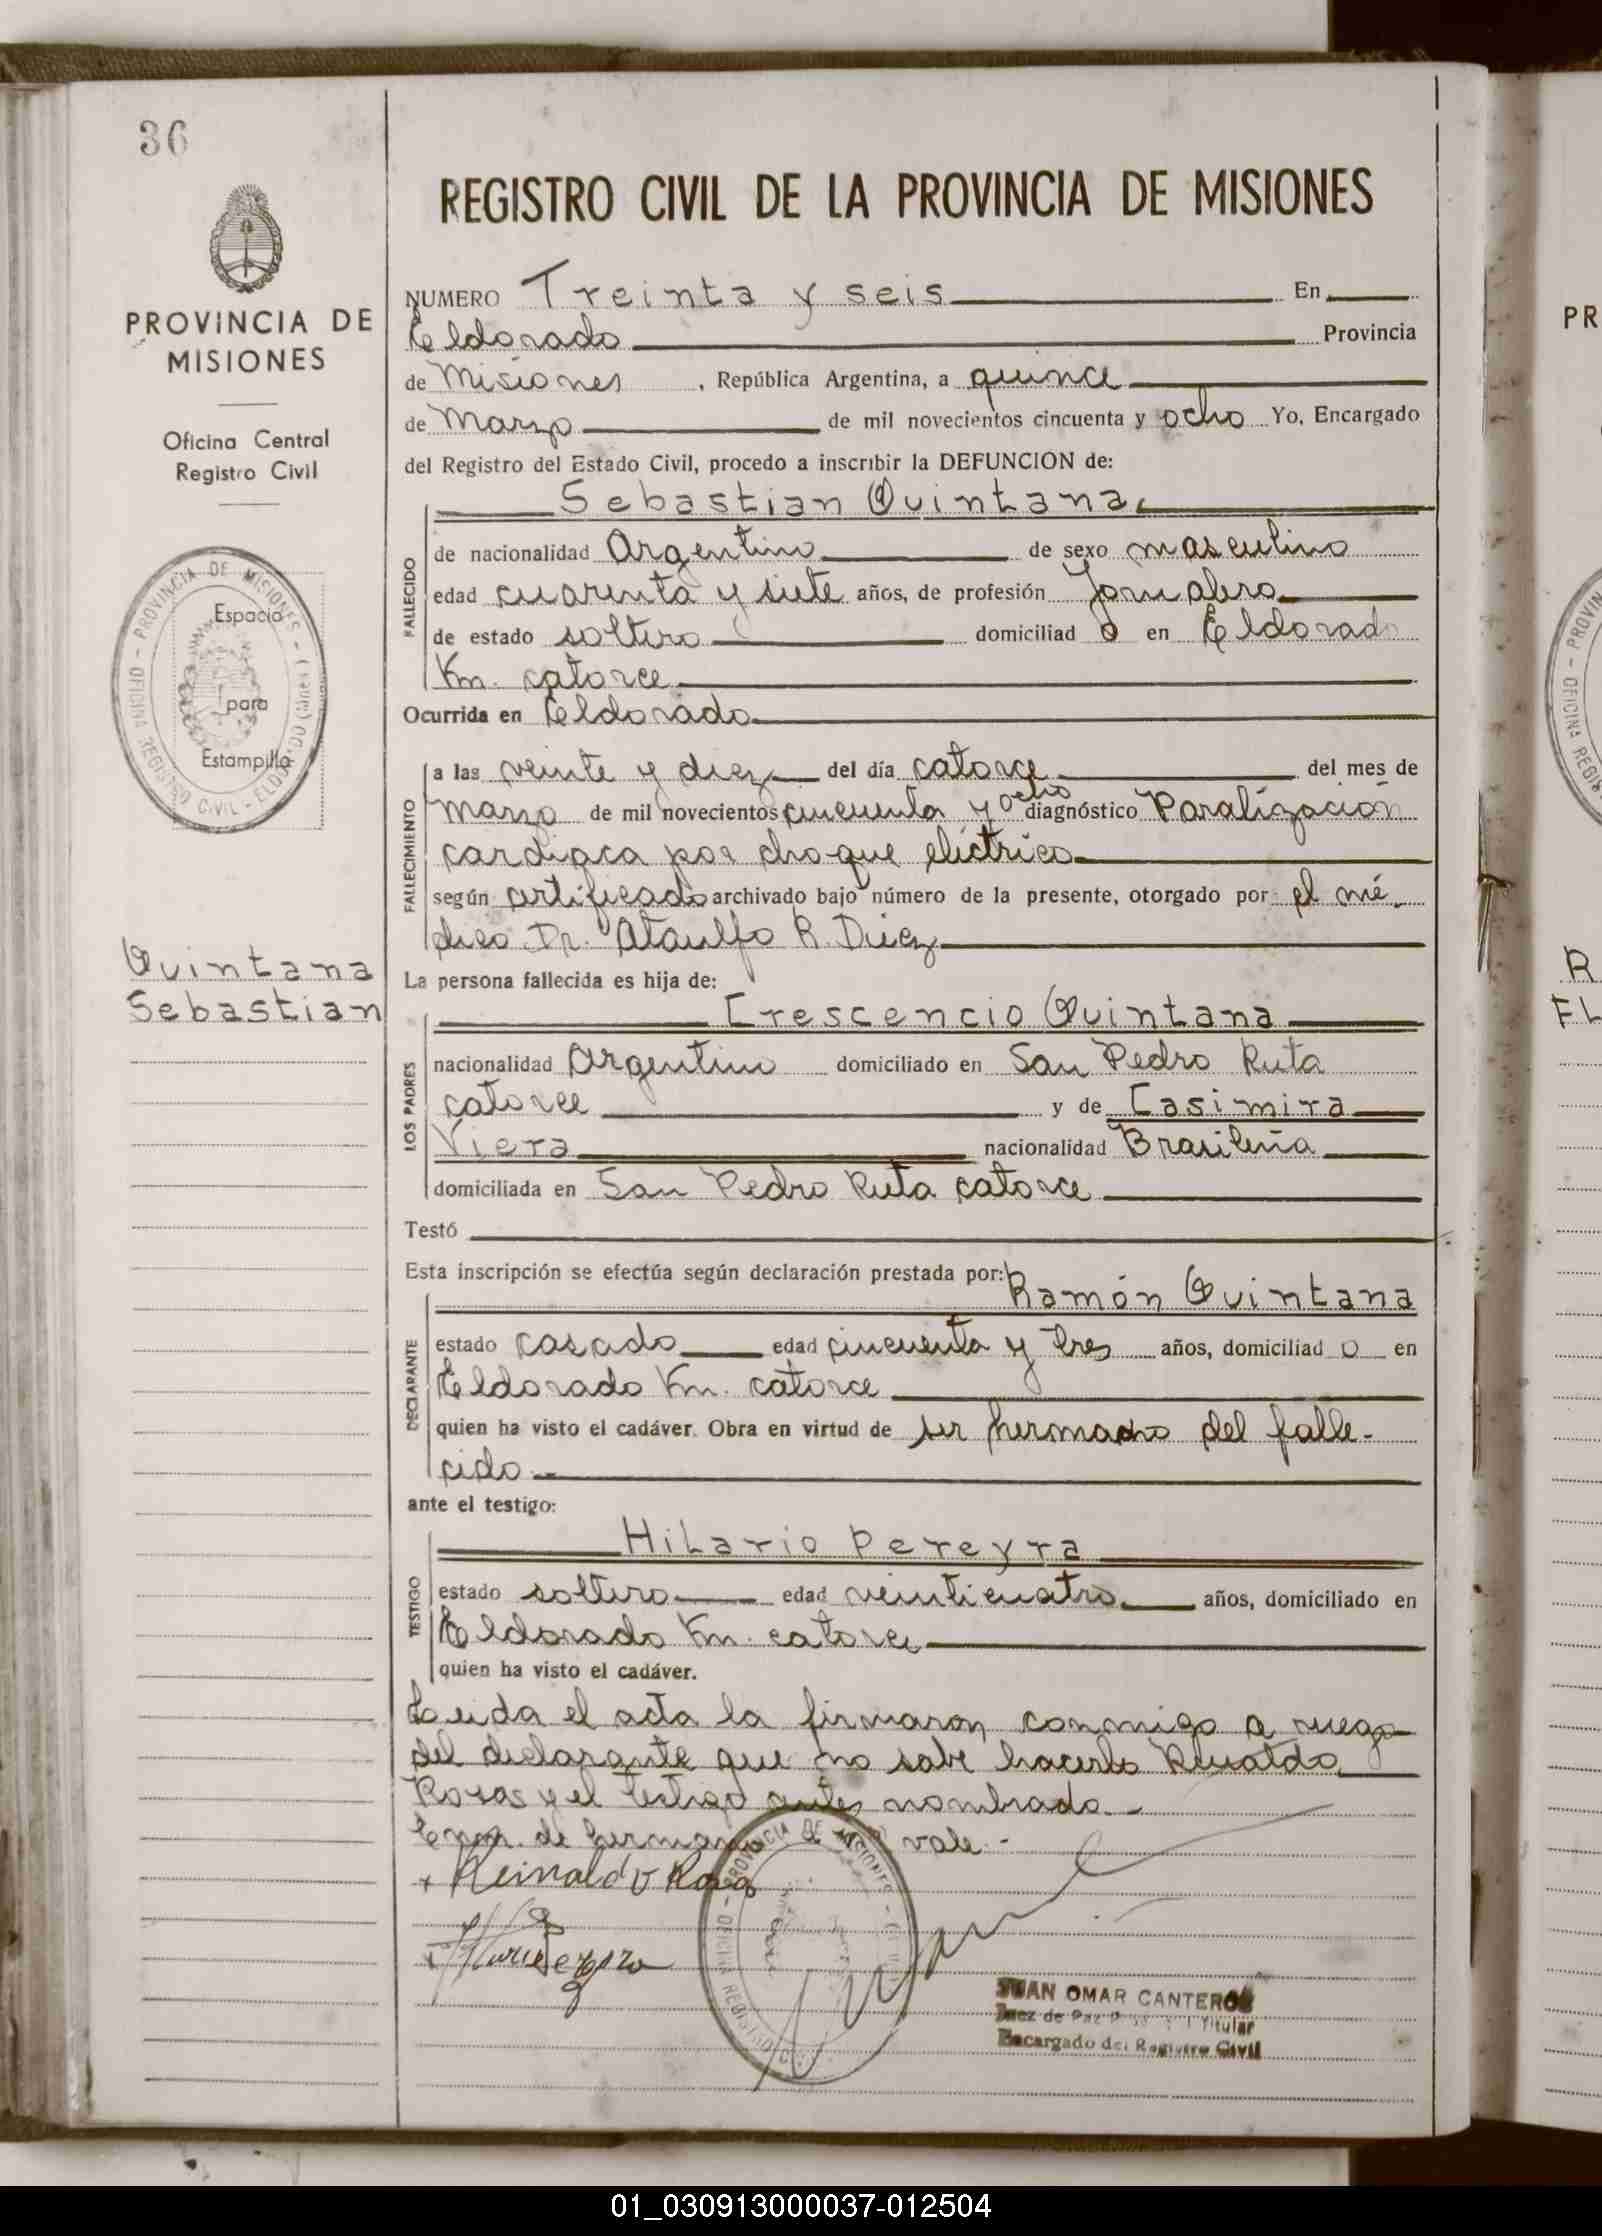 36
PROVINCIA DE
MISIONES
Oficina Central
Registro Civil
Espacio
para
Estampilla
Quintana
Sebastian
REGISTRO CIVIL DE LA PROVINCIA DE MISIONES
NUMERO Treinta y seis En
Eldorado Provincia
de Misiones, República Argentina, a quince
de Marzo de mil novecientos cincuenta y ocho Yo, Encargado
del Registro del Estado Civil, procedo a inscribir la DEFUNCION de:
FALLECIDO
Sebastian Quintana
de nacionalidad Argentino de sexo masculino
edad cuarenta y siete años, de profesión Jornalero
de estado soltero domiciliad o en Eldorado
Km. catorce
Ocurrida en Eldorado
FALLECIMIENTO
a las veinte y diez del día catorce del mes de
marzo de mil novecientos cincuenta y ocho diagnóstico Paralización
cardiaca por choque eléctrico
según certificado archivado bajo número de la presente, otorgado por el mé-
dico Dr. Ataulfo R. Diez
La persona fallecida es hija de:
LOS PADRES
Crescencio Quintana
nacionalidad Argentino domiciliado en San Pedro Ruta
catorce y de Casimira
Viera nacionalidad Brasileña
domiciliada en San Pedro Ruta catorce
Testó
Esta inscripción se efectúa según declaración prestada por:
DECLARANTE
Ramón Quintana
estado casado edad cincuenta y tres años, domiciliad o en
Eldorado Km. catorce
quien ha visto el cadáver. Obra en virtud de ser hermano del falle-
cido.-
ante el testigo:
TESTIGO
Hilario Pereyra
estado soltero edad veinticuatro años, domiciliado en
Eldorado Km. catorce
quien ha visto el cadáver.
Leida el acta la firmaron conmigo a ruego
del declarante que no sabe hacerlo Reinaldo
Rosas y el testigo antes nombrado.-
de hermano vale.-
Reinaldo Rosas
JUAN OMAR CANTEROS
Juez de Paz Titular
Encargado del Registro Civil
PR
R
FL
01_030913000037-012504